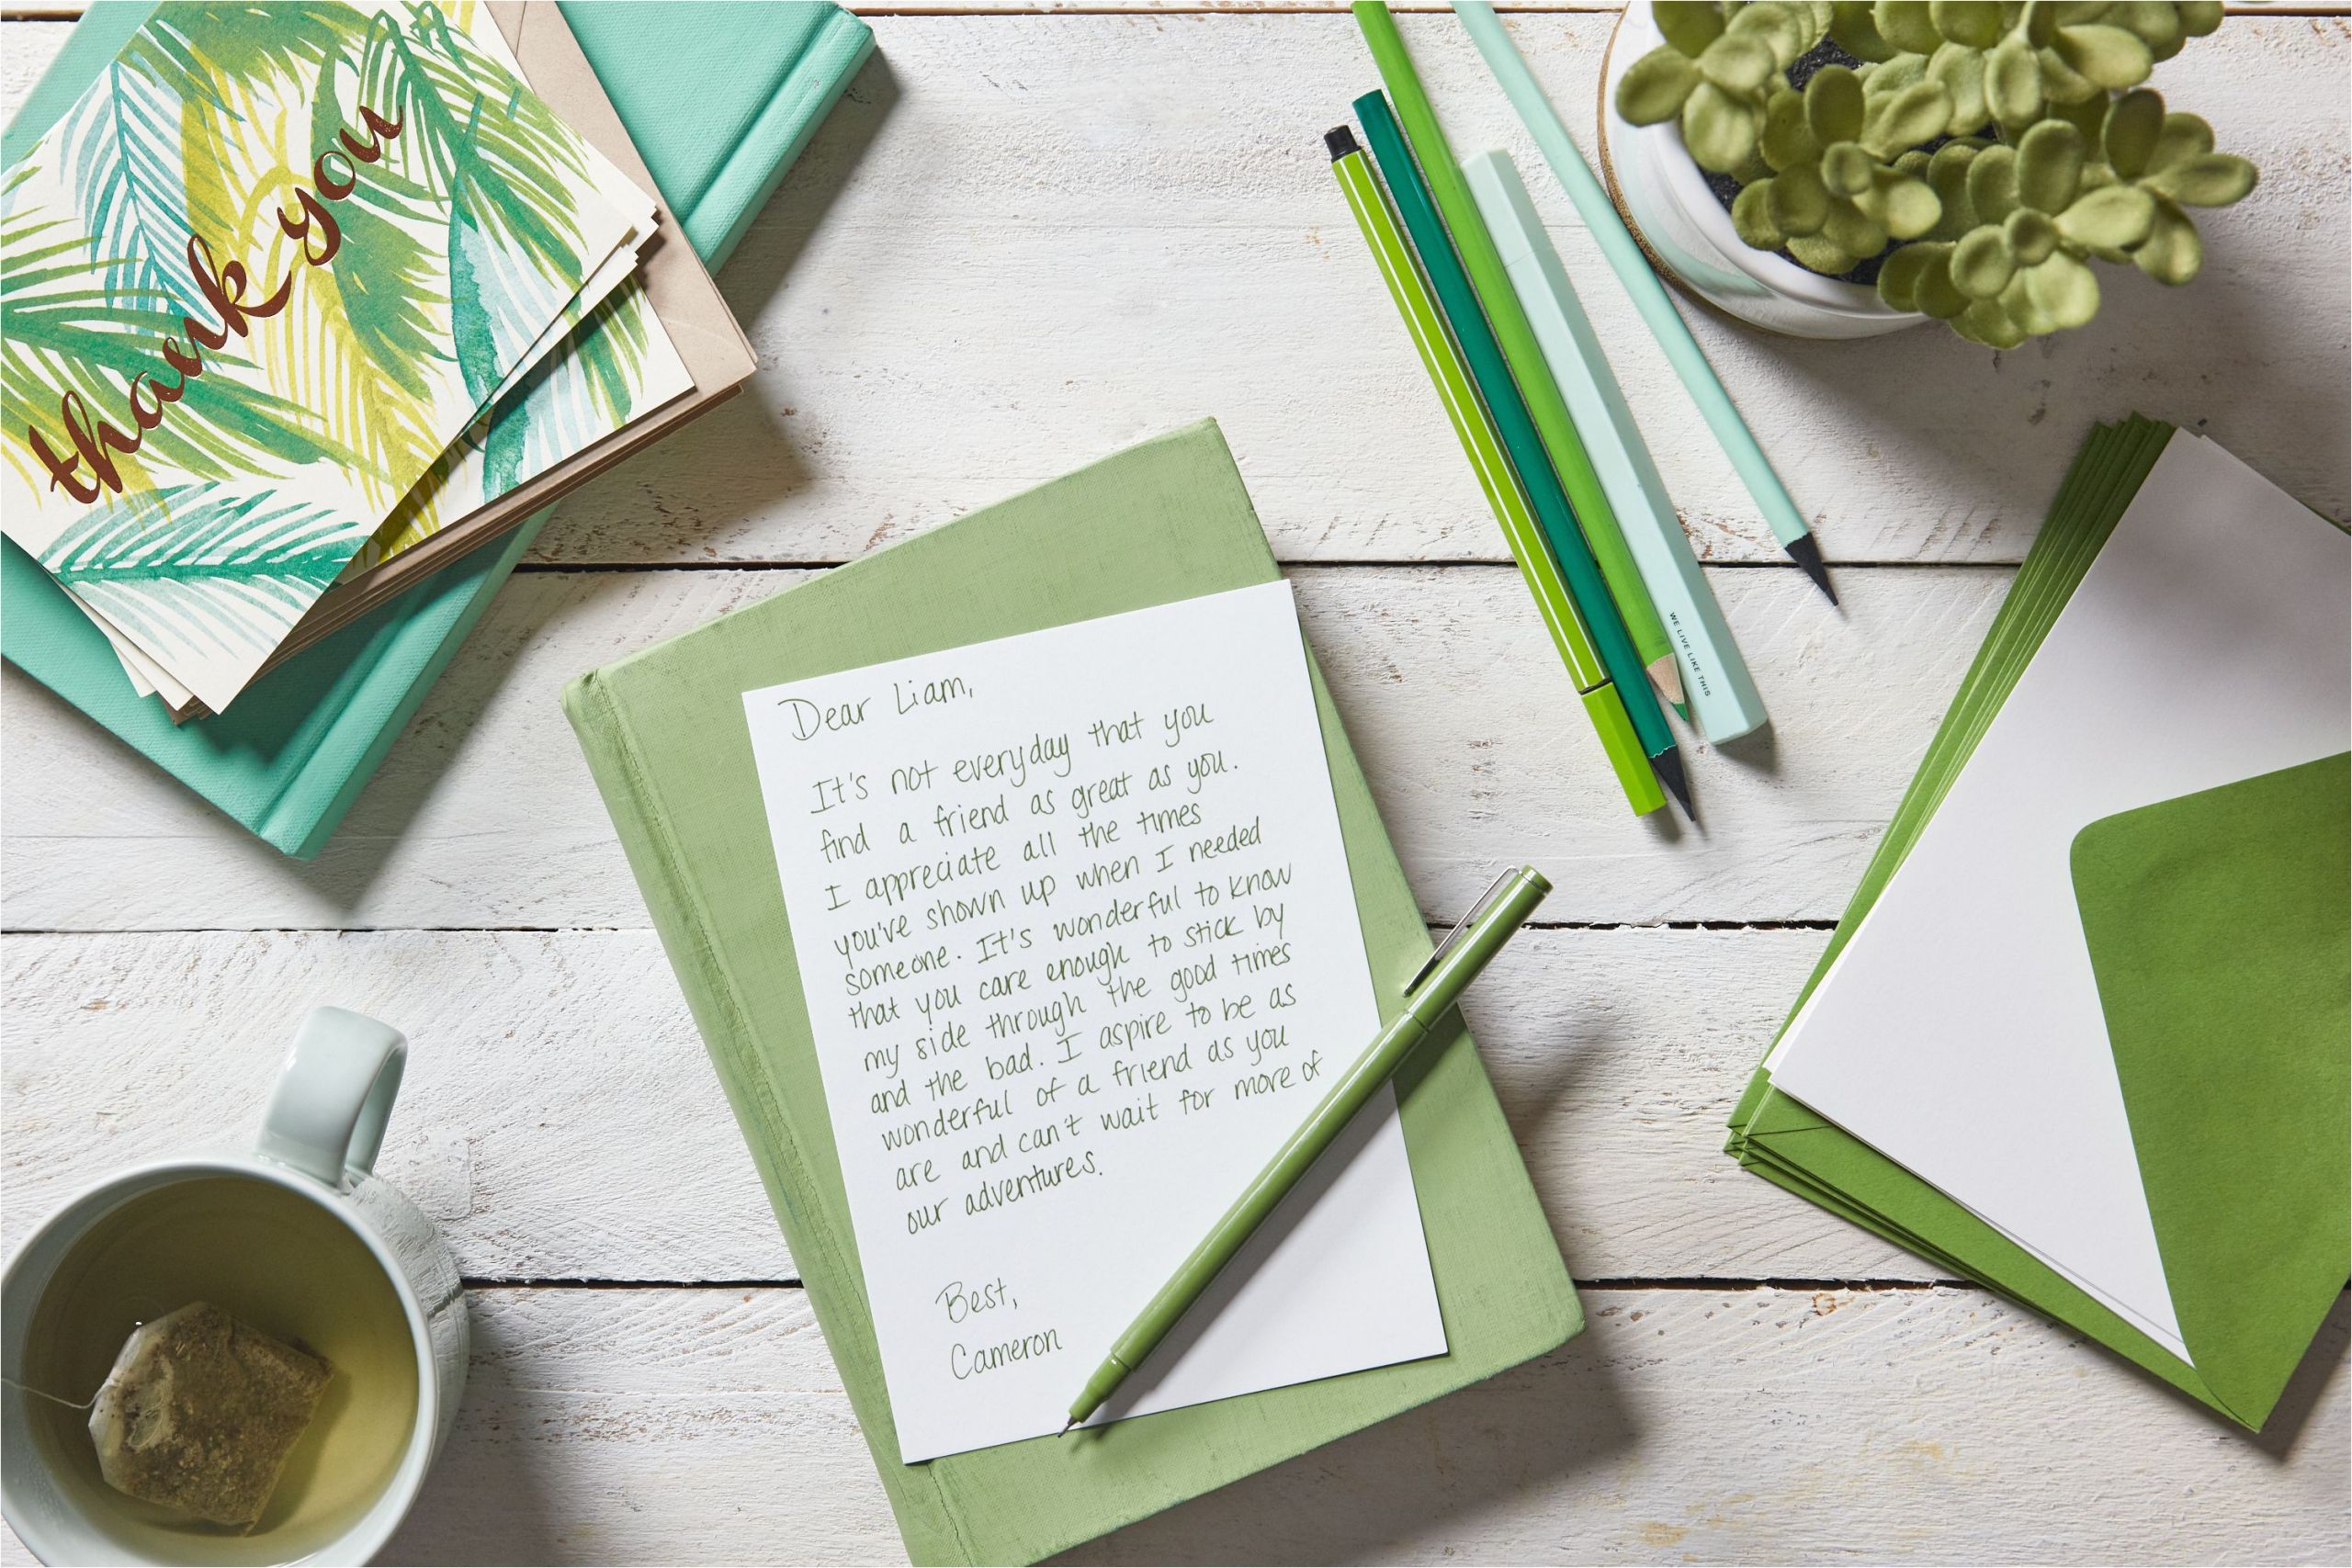 thank you
WE LIVE LIKE THIS
Dear Liam,
It's not everyday that you
find a friend as great as you.
I appreciate all the times
you've shown up when I needed
someone. It's wonderful to know
that you care enough to stick by
my side through the good times
and the bad. I aspire to be as
wonderful of a friend as you
are and can't wait for more of
our adventures.
Best,
Cameron